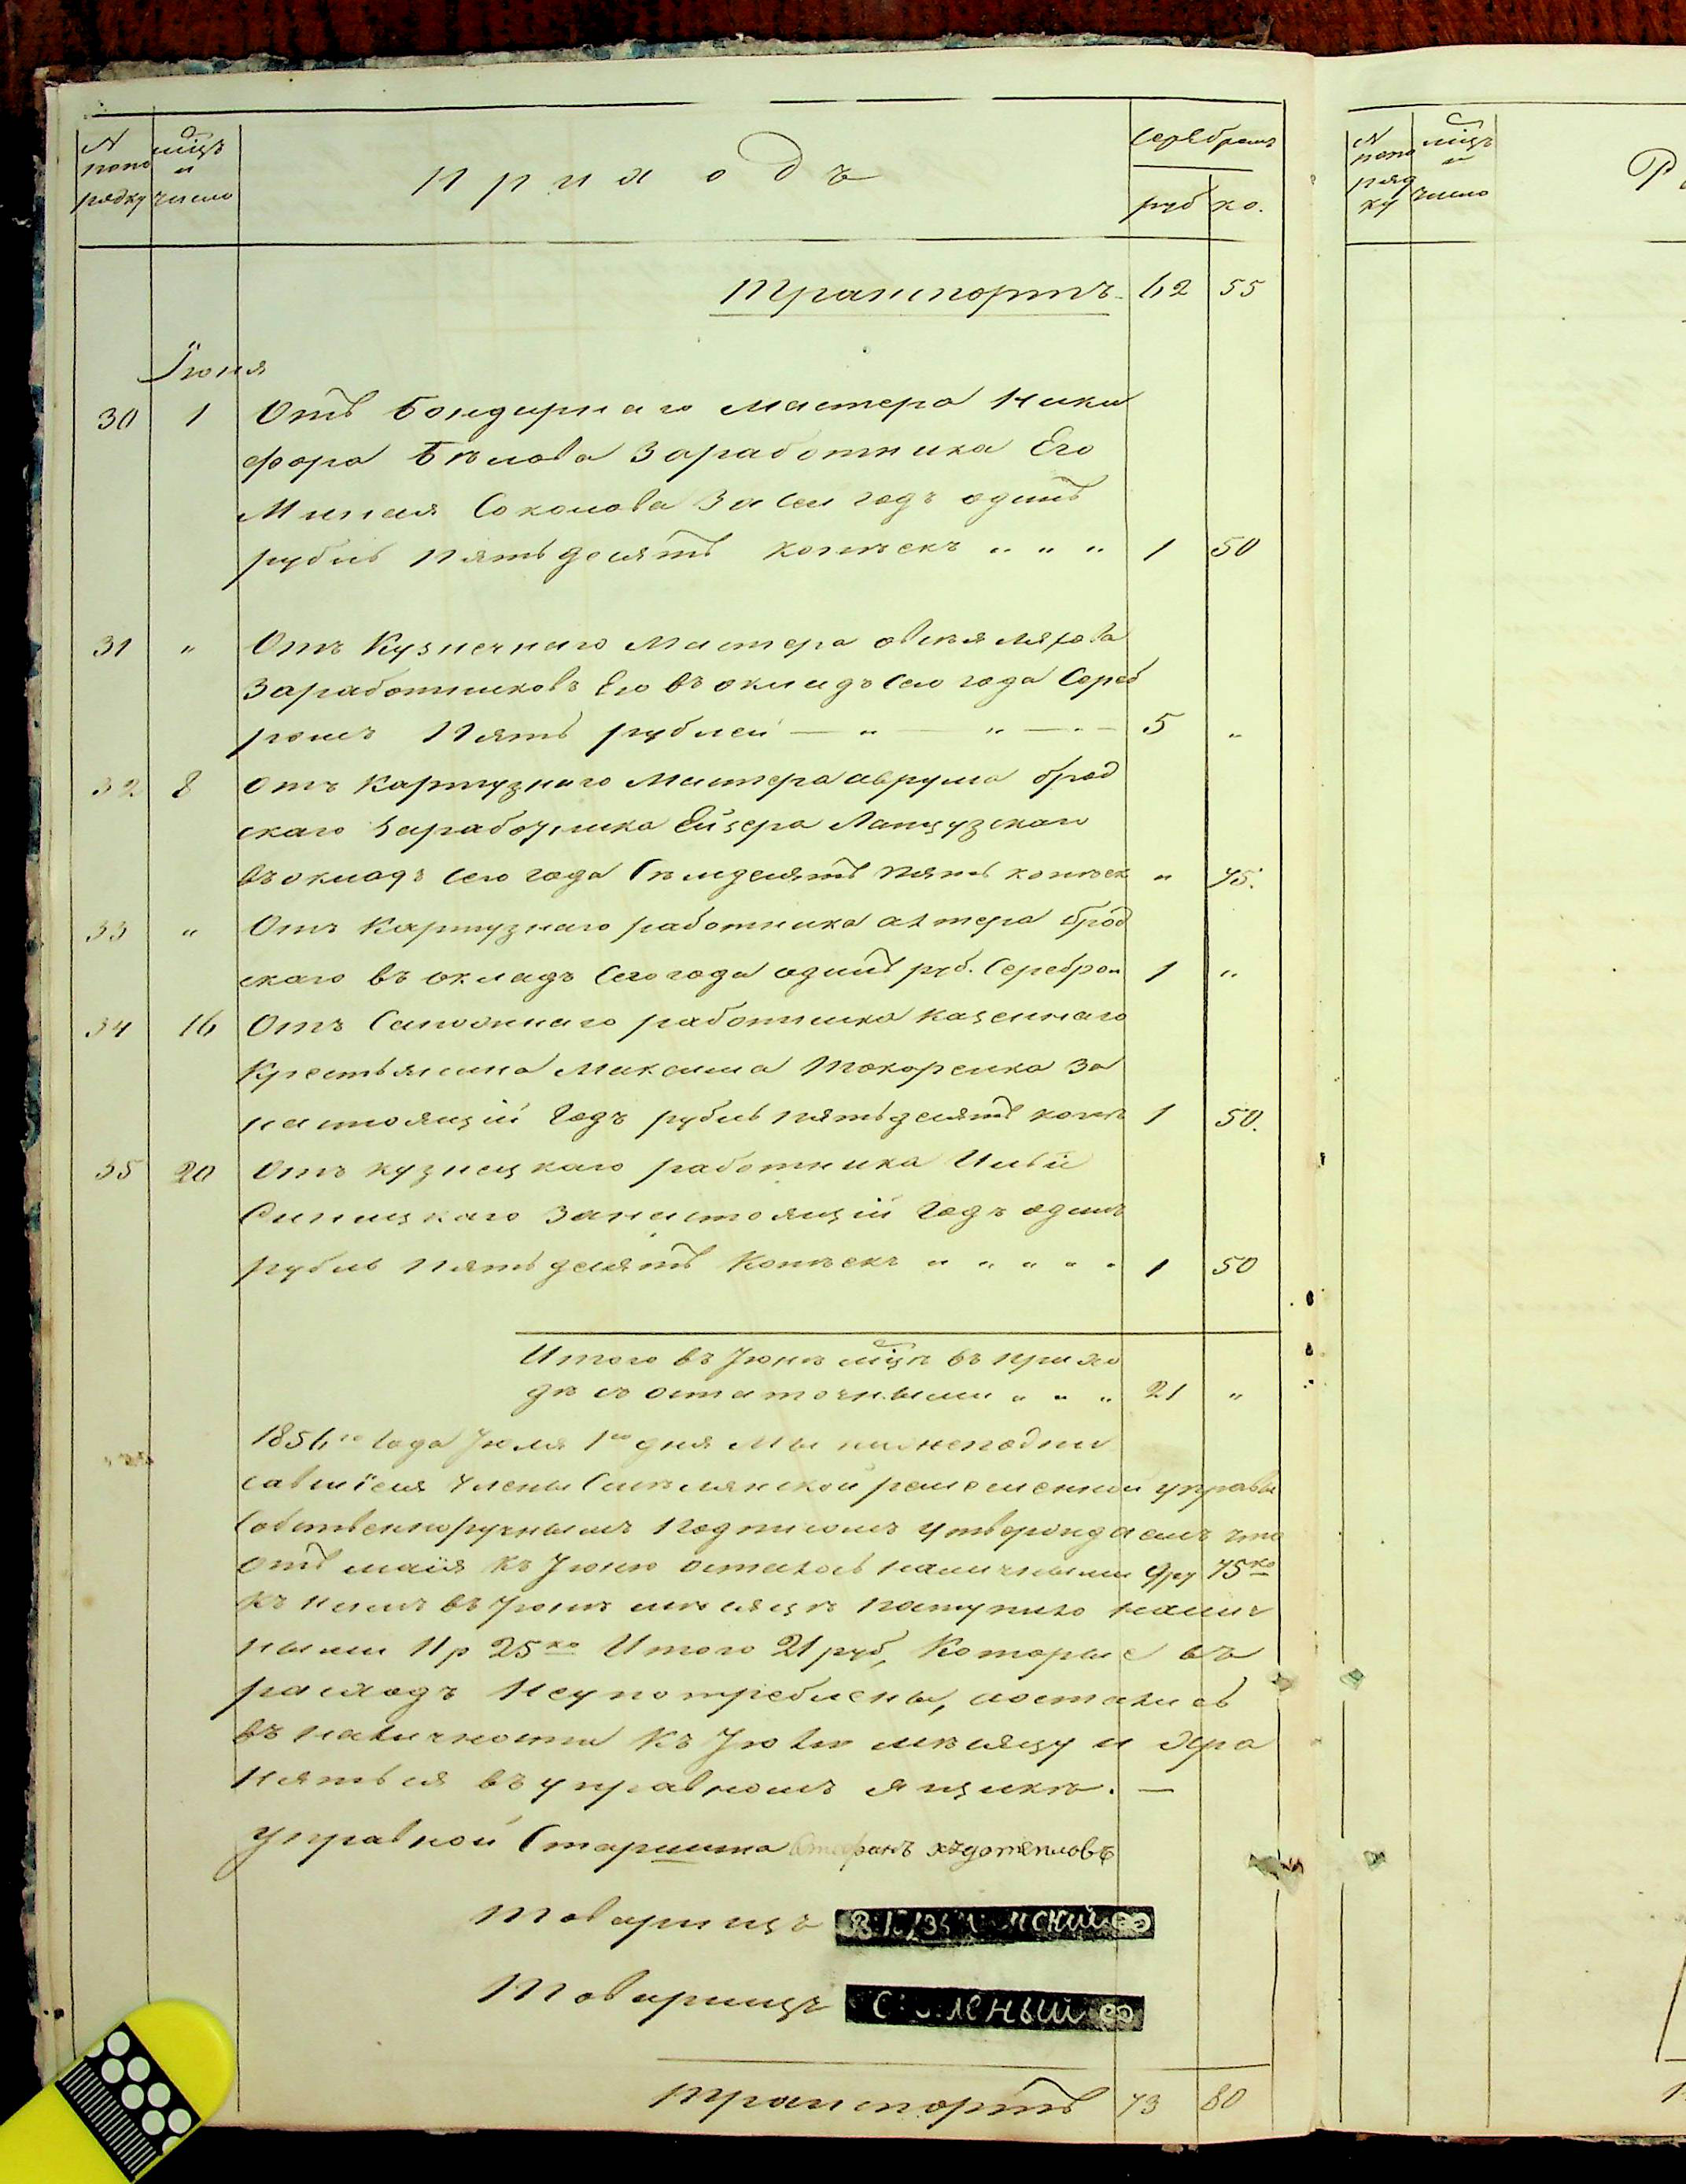 N
попо
рядку
мцъ
и
число
приходъ
Серебромъ
руб ко.
Транспортъ 62 55
Іюня
30 1 Отъ Бондарнаго мастера Ники
фора Бѣлова Заработника Его
Миная Соколова За сей годъ одинъ
рубль пятьдесятъ копѣекъ " " " 1 50
31 " Отъ Кузнечнаго мастера Овсея Ляхова
Заработниковъ Его въ окладъ сего года Сереб
ромъ Пять рублей — " — " — 5 "
32 8 Отъ Картузнаго Мастера Аврума Брод
скаго Заработника Ейзера
въ окладъ сего года Семдесятъ пять копѣек " 75.
33 " Отъ Картузнаго работника Брод
скаго въ окладъ Сего года одинъ руб. Серебром 1 "
34 16 Отъ Сапожнаго работника казеннаго
Крестьянина Максима Токоренка За
настоящій Годъ рубль пятьдесятъ копѣ 1 50.
35 20 Отъ кузнецкаго работника Ильи
Синицкаго За настоящій Годъ одинъ
рубль Пятьдесятъ Копѣекъ " " " " 1 50
Итого въ Іюнѣ мцѣ въ прихо
дѣ съ остаточными " " " 21 "
1856го Года Іюля 1го дня Мы нижеподпи
савшіеся Члены Смѣлянской ремесленной управы
Собственноручнымъ подписомъ утверждаемъ что
Отъ маія къ Іюню осталось наличными 9ру 75ко
къ нимъ въ Іюнѣ месяцѣ поступило налич
ными 11р 25ко Итого 21 руб, Которые въ
расходъ Неупотреблены, а остались
въ наличности къ Іюлю мѣсяцу и хра
няться въ управномъ ящикѣ. —
Управной Старшина Стефанъ
Товарищъ
Товарищъ
Транспортъ 73 80
N
попо
ряд
ку
мцъ
и
число
Р